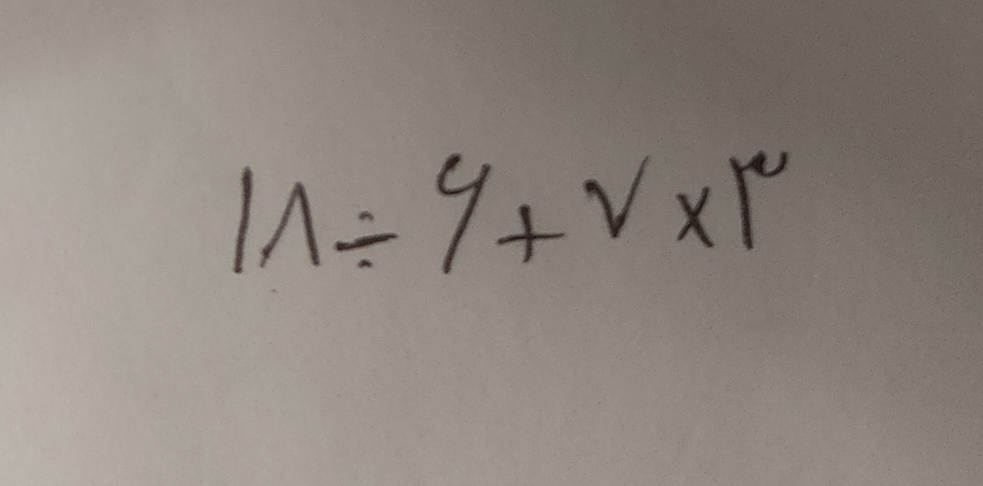 ۱۸ ÷ ۶ + ۷ × ۳